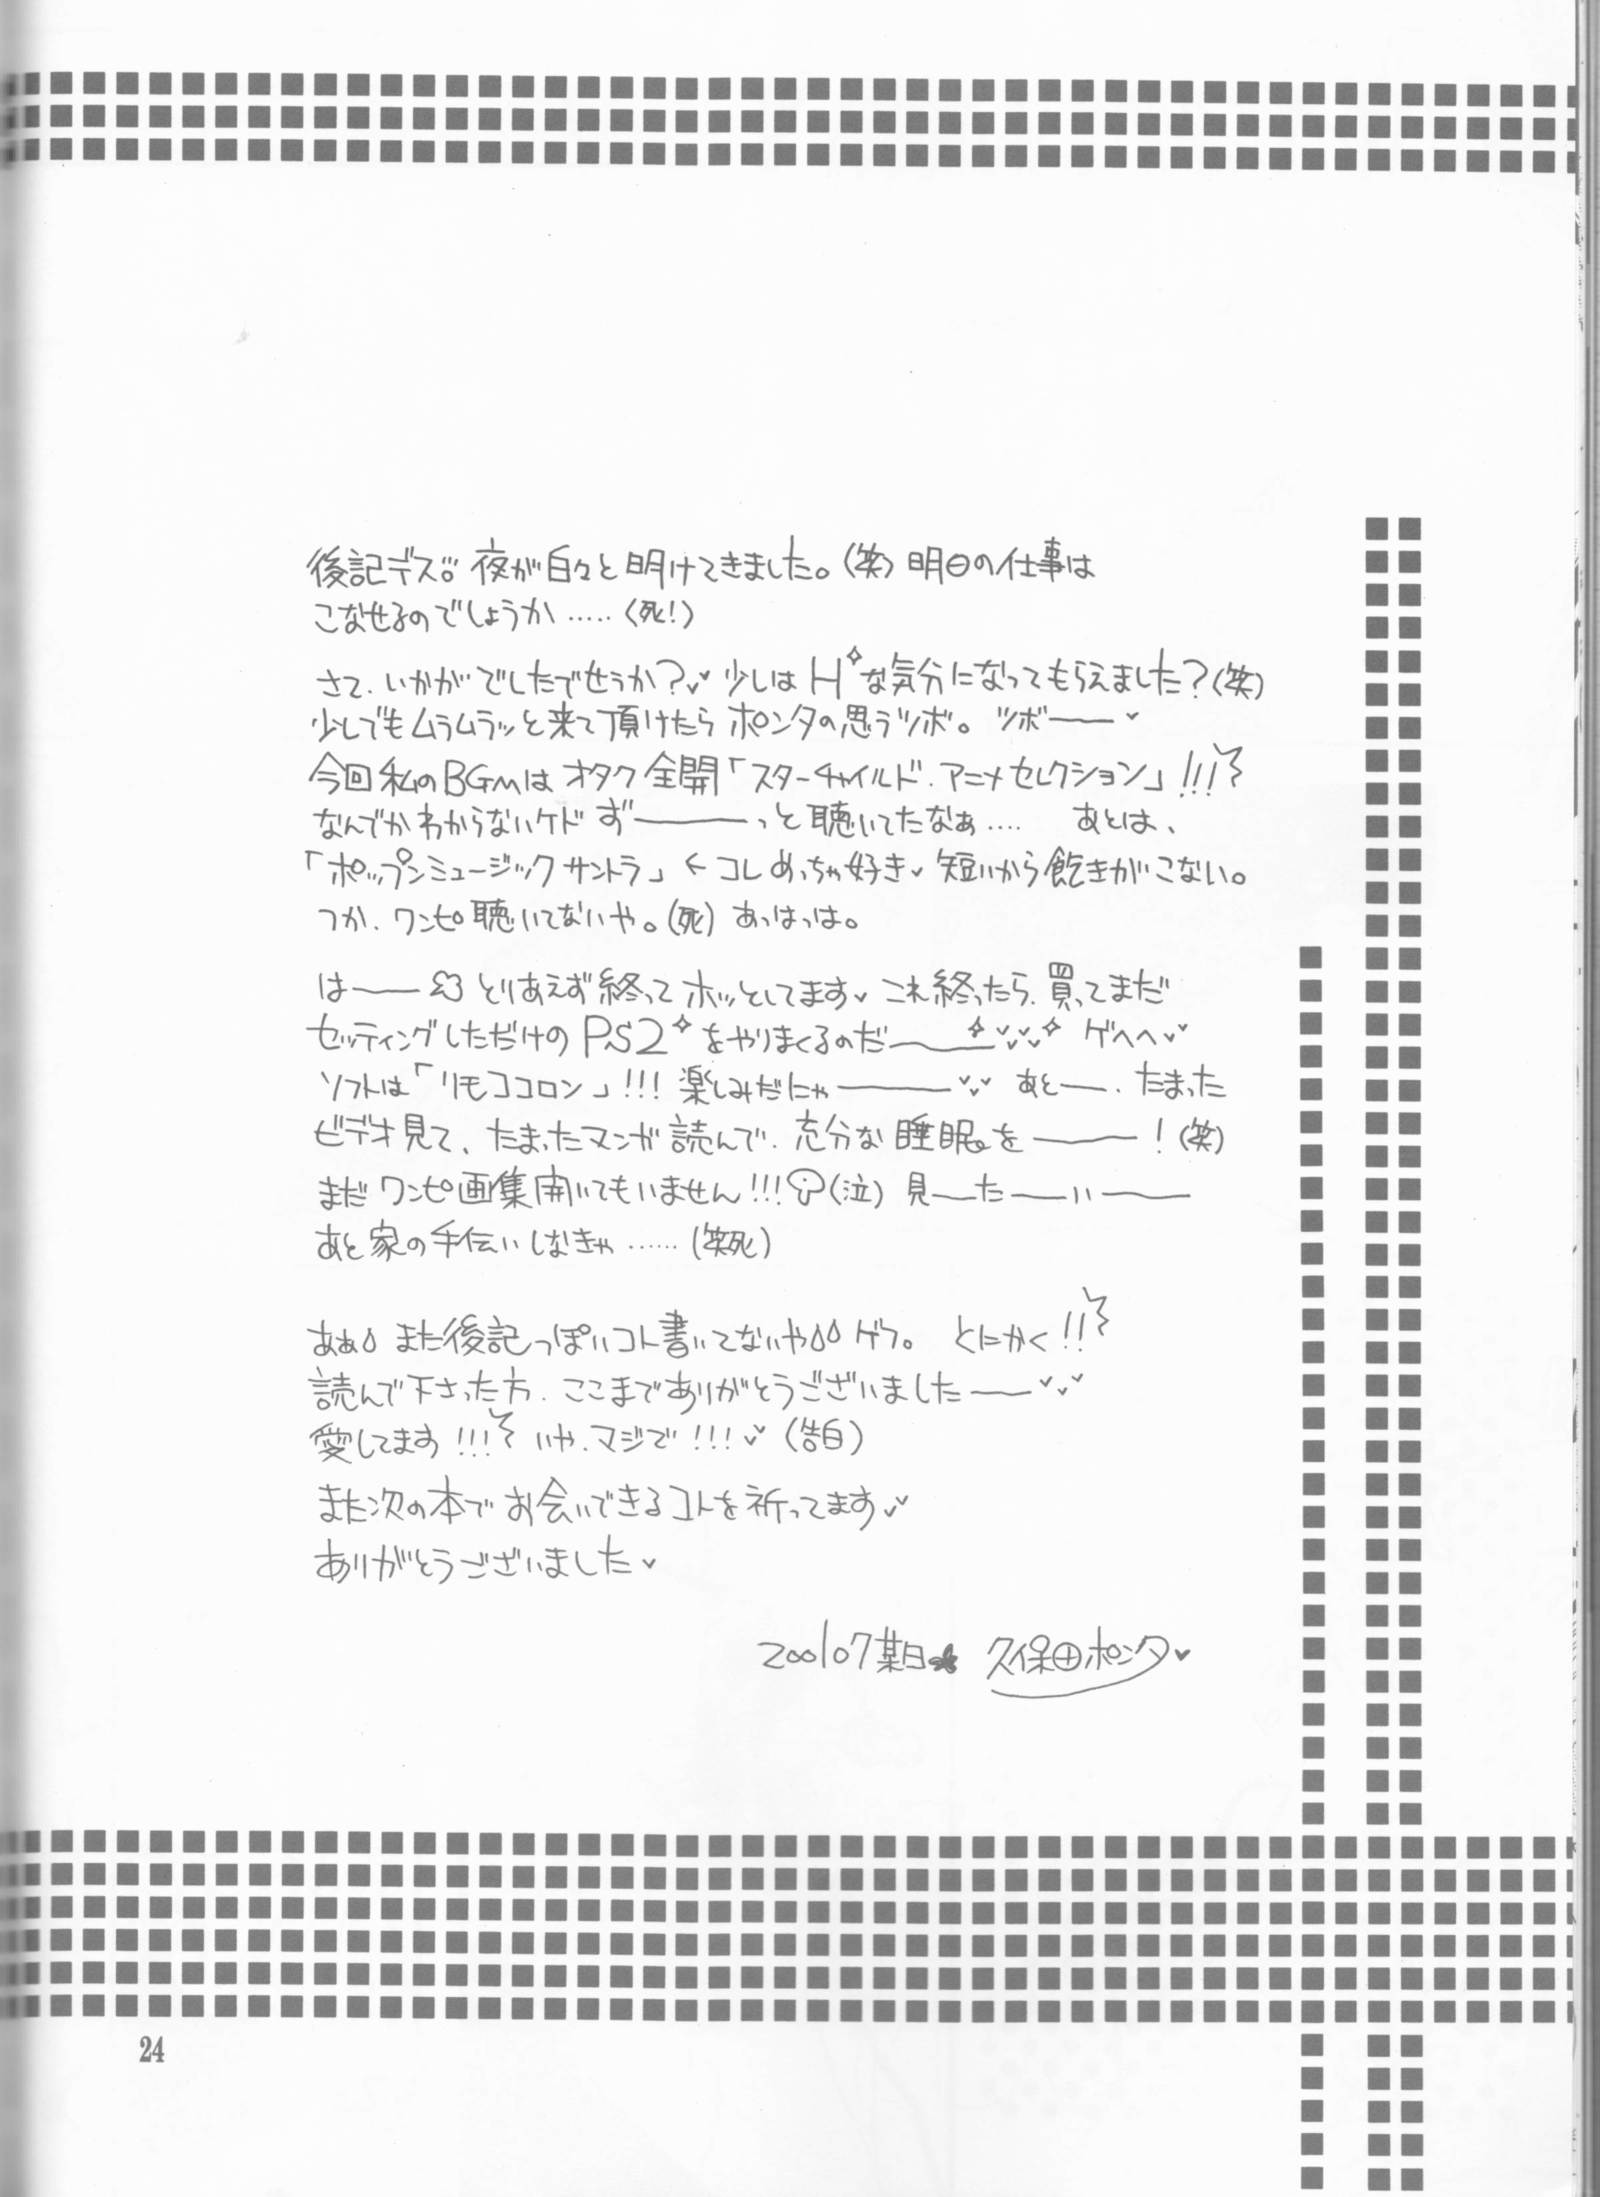 後記デス。夜が白々と明けてきました。(笑) 明日の仕事は
こなせるのでしょうか……(死!)
さて、いかがでしたでせうか?♥ 少しはHな気分になってもらえました?(笑)
少しでもムラムラッと来て頂けたらポンタの思うツボ。ツボ——♥
今回私のBGMはオタク全開「スターチャイルド・アニメセレクション」!!!
なんでかわからないケドず———っと聴いてたなぁ…. あとは、
「ポップンミュージックサントラ」←コレめっちゃ好き♥ 短いから飽きがこない。
つか、ワンピ聴いてないや。(死) あっはっは。
は—— とりあえず終ってホッとしてます♥ これ終ったら、買ってまだ
セッティングしただけのPS2をやりまくるのだ———♥♥ ゲヘヘ♥
ソフトは「リモココロン」!!! 楽しみだにゃ———♥♥ あと—、たまった
ビデオ見て、たまったマンガ読んで、充分な睡眠を———!(笑)
まだワンピ画集開いてもいません!!!(泣) 見—た—い——
あと家の手伝いしなきゃ……(笑死)
あぁ また後記っぽいコト書いてないや ゲフ。 とにかく!!
読んで下さった方、ここまでありがとうございました——♥♥
愛してます!!! いや、マジで!!!♥(告白)
また次の本でお会いできるコトを祈ってます♥
ありがとうございました♥
200107某日 久保田ポンタ♥
24